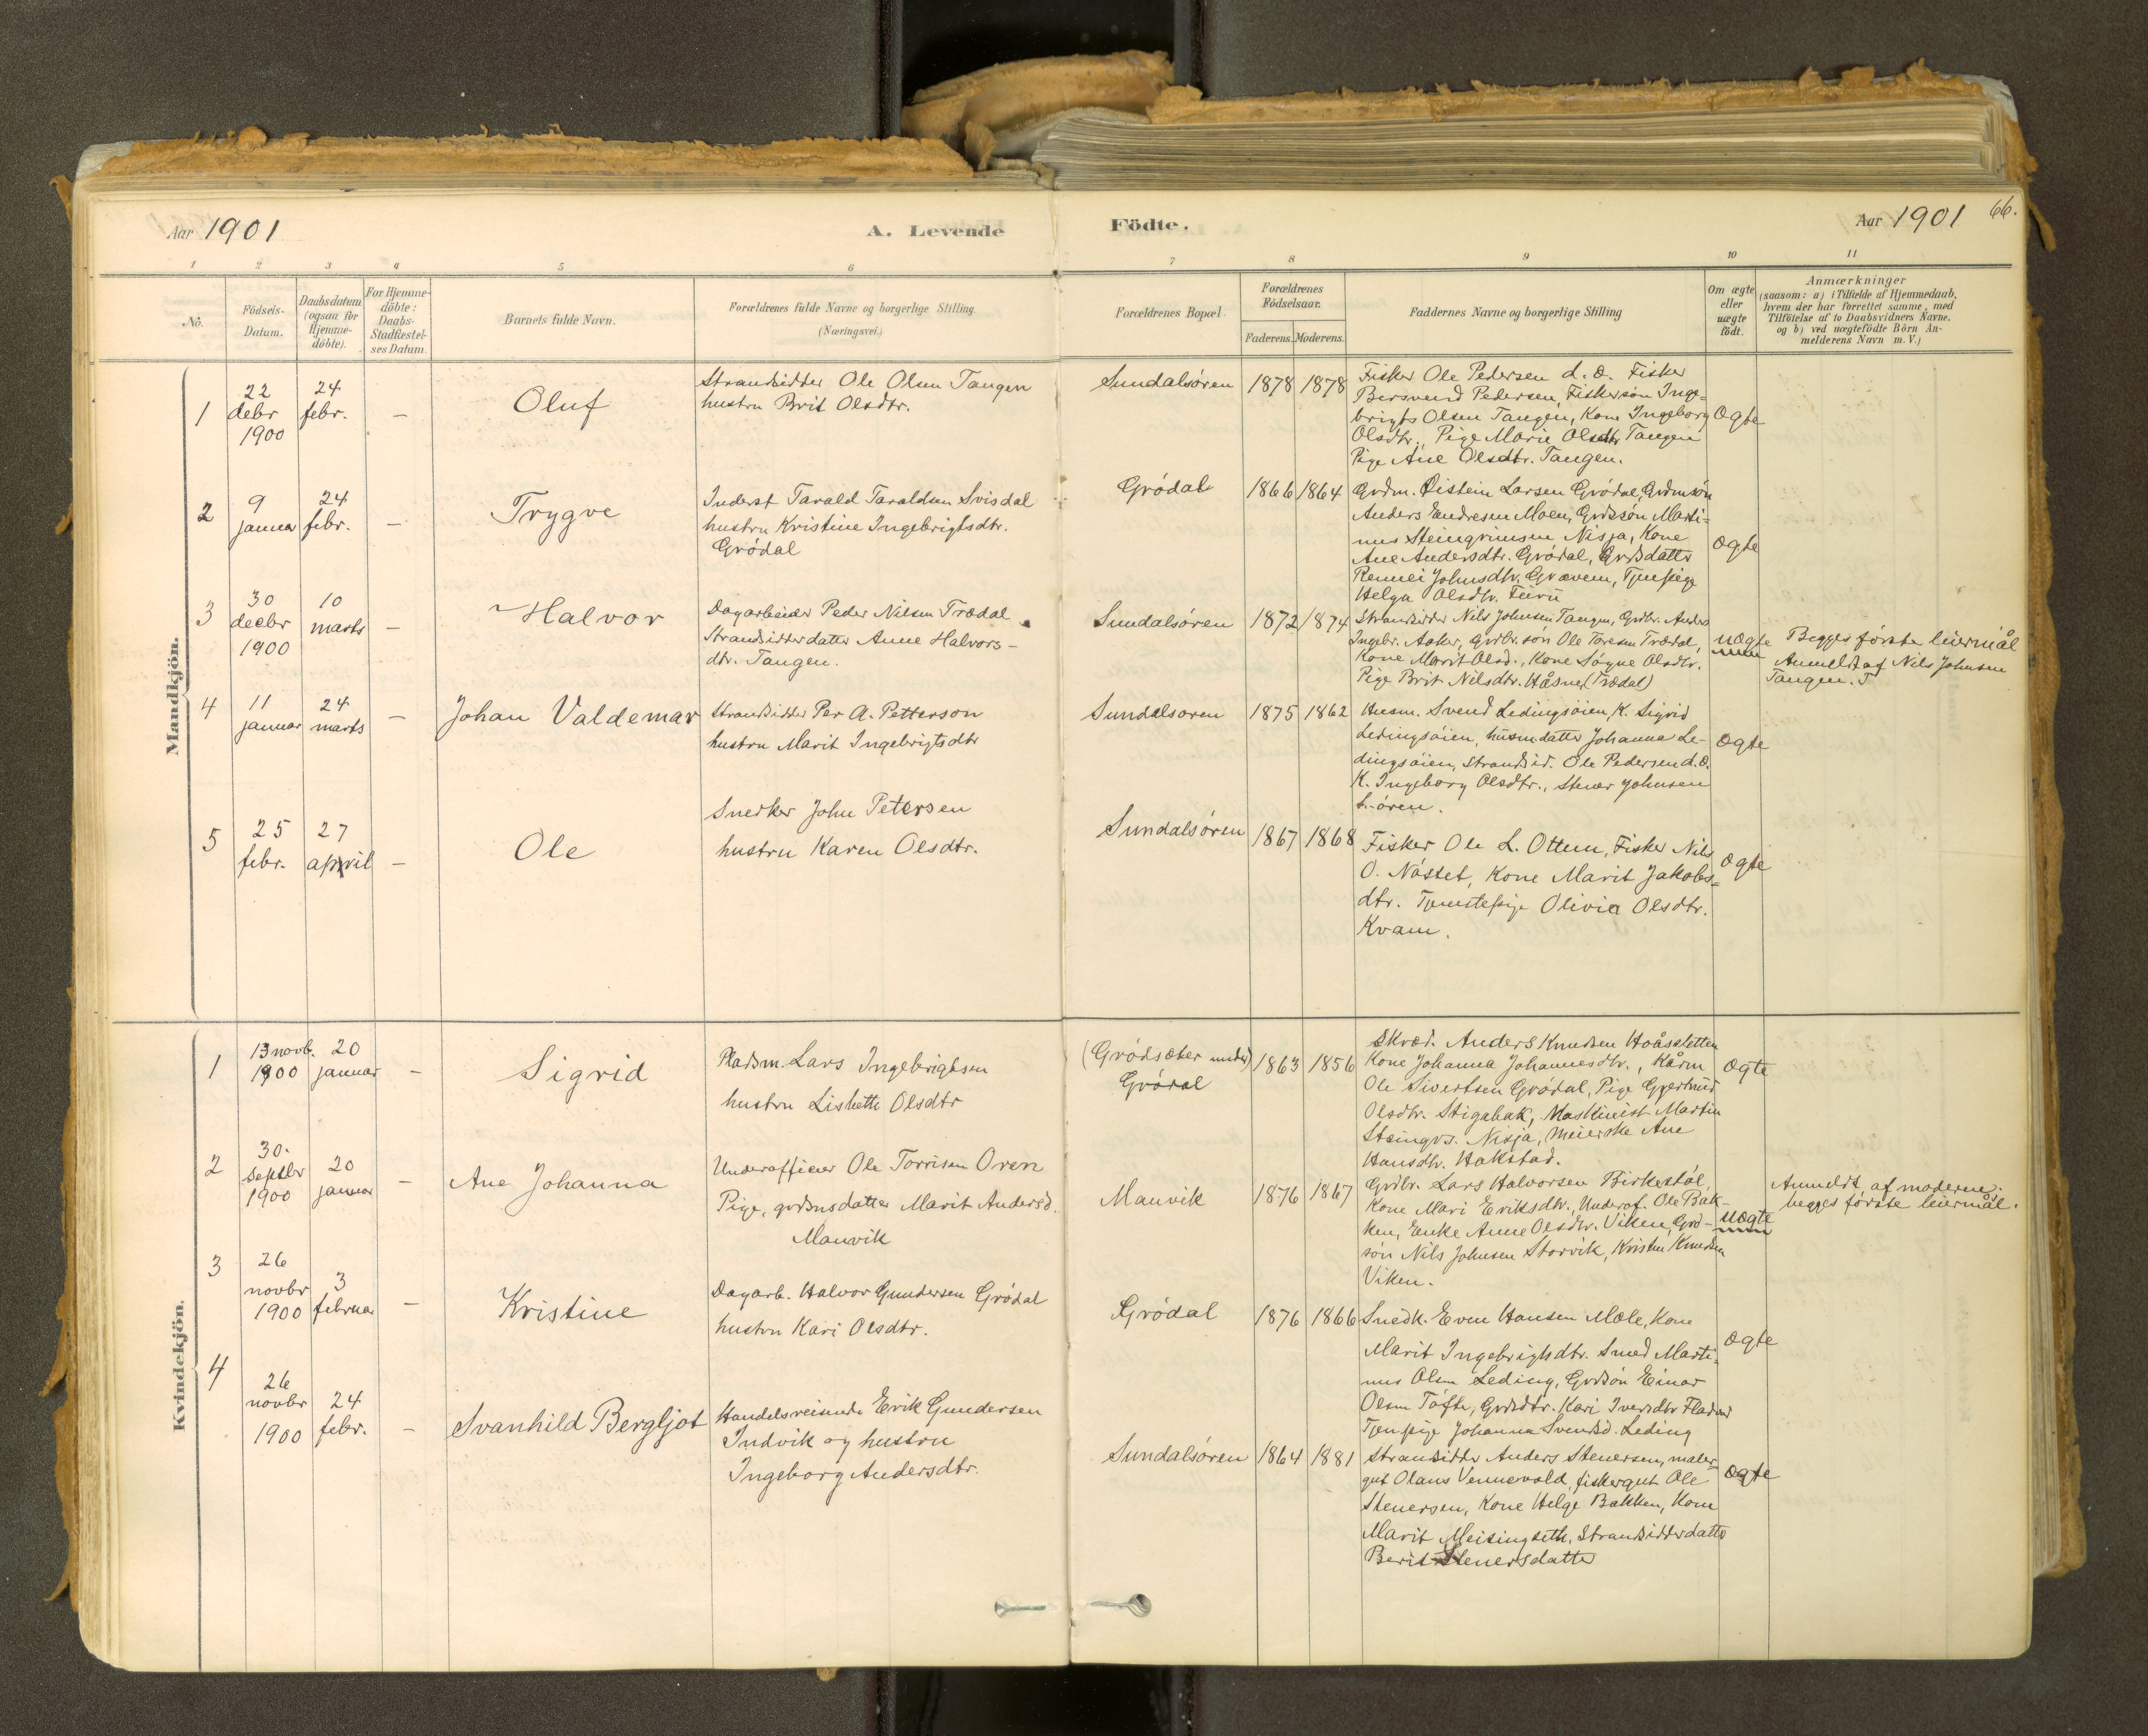 Aar 1901
A. Levende
Födte.
Aar 1901
66.
1 2 3 4 5 6 7 8 9 10 11
No.
Födsels-
Datum.
Daabsdatum
(ogsaa for
Hjemme-
döbte).
For Hjemme-
döbte:
Daabs-
Stadfæstel-
ses Datum.
Barnets fulde Navn.
Forældrenes fulde Navne og borgerlige Stilling
(Næringsvei.)
Forældrenes Bopæl.
Forældrenes
Födselsaar.
Faderens. Moderens.
Faddernes Navne og borgerlige Stilling
Om ægte
eller
uægte
födt.
Anmærkninger
(saasom: a) i Tilfælde af Hjemmedaab,
hvem der har forrettet samme, med
Tilföielse af to Daabsvidners Navne,
og b) ved uægtefödte Börn An-
melderens Navn m. V.)
Mandkjön.
1
22
debr
1900
24
febr.
-
Oluf
Strandsidder Ole Olsen Tangen
hustru Brit Olsdtr.
Sundalsøren
1878
1878
Fisker Ole Pedersen d.æ. Fisker
Bersvend Pedersen, Fiskersøn Inge-
brigts Olsen Tangen, Kone Ingeborg
Olsdtr., Pige Marie Olsdtr Tangen
Pige Ane Olsdtr. Tangen.
Ægte
2
9
januar
24
febr.
-
Trygve
Inderst Tarald Taraldsen Svisdal
hustru Kristine Ingebrigtsdtr.
Grödal
Grødal
1866
1864
Grdm. Øistein Larsen Grødal, Grdmsøn
Anders Endresen Moen, Grdssøn Marti-
nus Steingrimsen Nisja, Kone
Ane Andersdtr. Grødal, Grdsdatter
Rennei Johnsdtr. Grævem, Tjenpige
Helga Olsdtr. Furu
Ægte
3
30
decbr
1900
10
marts
-
Halvor
Dagarbeider Peder Nilsen Trædal
Strandsidderdatter Anne Halvors-
dtr. Tangen.
Sundalsøren
1872
1874
Strandsidder Nils Johnsen Tangen, Grdbr. Anders
Ingebr. Aaker, Grdbr. søn Ole Toresen Trædal,
Kone Marit Olsd., Kone Søgne Olsdtr.
Pige Brit Nilsdtr. Håsnes (Trædal)
uægte
Begges første leiermål
Anmeldt af Nils Johnsen
Tangen.
4
11
januar
24
marts
-
Johan Valdemar
Strandsidder Per A. Petterson
hustru Marit Ingebrigtsdtr
Sundalsøren
1875
1862
Husm. Svend Ledingsøien, K. Sigrid
Ledingsøien, husmdatter Johanna Le-
dingsøien, Strandsid. Ole Pedersen d.æ.
K. Ingeborg Olsdtr., Stener Johnsen
S.øren.
Ægte
5
25
febr.
27
april
-
Ole
Snedker John Petersen
hustru Karen Olsdtr.
Sundalsøren
1867
1868
Fisker Ole L. Ottem, Fisker Nils
O. Nåstet, Kone Marit Jakobs-
dtr. Tjenstepige Olivia Olsdtr.
Kvam.
Ægte
Kvindekjön.
1
13 novb.
1900
20
januar
-
Sigrid
Pladsm. Lars Ingebrigtsen
hustru Lisbeth Olsdtr
(Grødsæter under)
Grødal
1863
1856
Skræd. Anders Knudsen Hoåssletten
Kone Johanna Johannesdtr., Kårm
Ole Sivertsen Grødal, Pige Gjertrud
Olsdtr. Stigahak, Maskinist Martin
Steingrs. Nisja, Meierske Ane
Hansdtr. Hakstad.
Ægte
2
30.
septbr
1900
20
januar
-
Ane Johanna
Underofficer Ole Torrisen Oren
Pige, grdmsdatter Marit Andersd.
Mauvik
Mauvik
1876
1867
Grdbr. Lars Halvorsen Birkestøl,
Kone Mari Eriksdtr., Underof. Ole Bak-
ken, Enke Anne Olsdtr. Viken, Grd-
søn Nils Johnsen Storvik, Kristen Knudsen
Viken.
uægte
Anmeldt af moderen.
begges første leiermål.
3
26
novbr
1900
3
februar
-
Kristine
Dagarb. Halvor Gundersen Grødal
hustru Kari Olsdtr.
Grødal
1876
1866
Snedk. Even Hansen Mæle, Kone
Marit Ingebrigtsdtr. Smed Marti-
nus Olsen Leding, Grdsøn Einar
Olsen Tøfte, Grdsdtr. Kari Iversdtr
Tjenpige Johanna Svendsd. Leding
Ægte
4
26
novbr
1900
24
febr.
-
Svanhild Bergljot
Handelsreisende Erik Gundersen
Indvik og hustru
Ingeborg Andersdtr.
Sundalsøren
1864
1881
Strandsidder Anders Stenersen, maler-
gut Olaus Vennevold, fiskergut Ole
Stenersen, Kone Helge Bakken, Kone
Marit Meisingseth, Strandsidderdatter
Berit Stenersdatter
Ægte